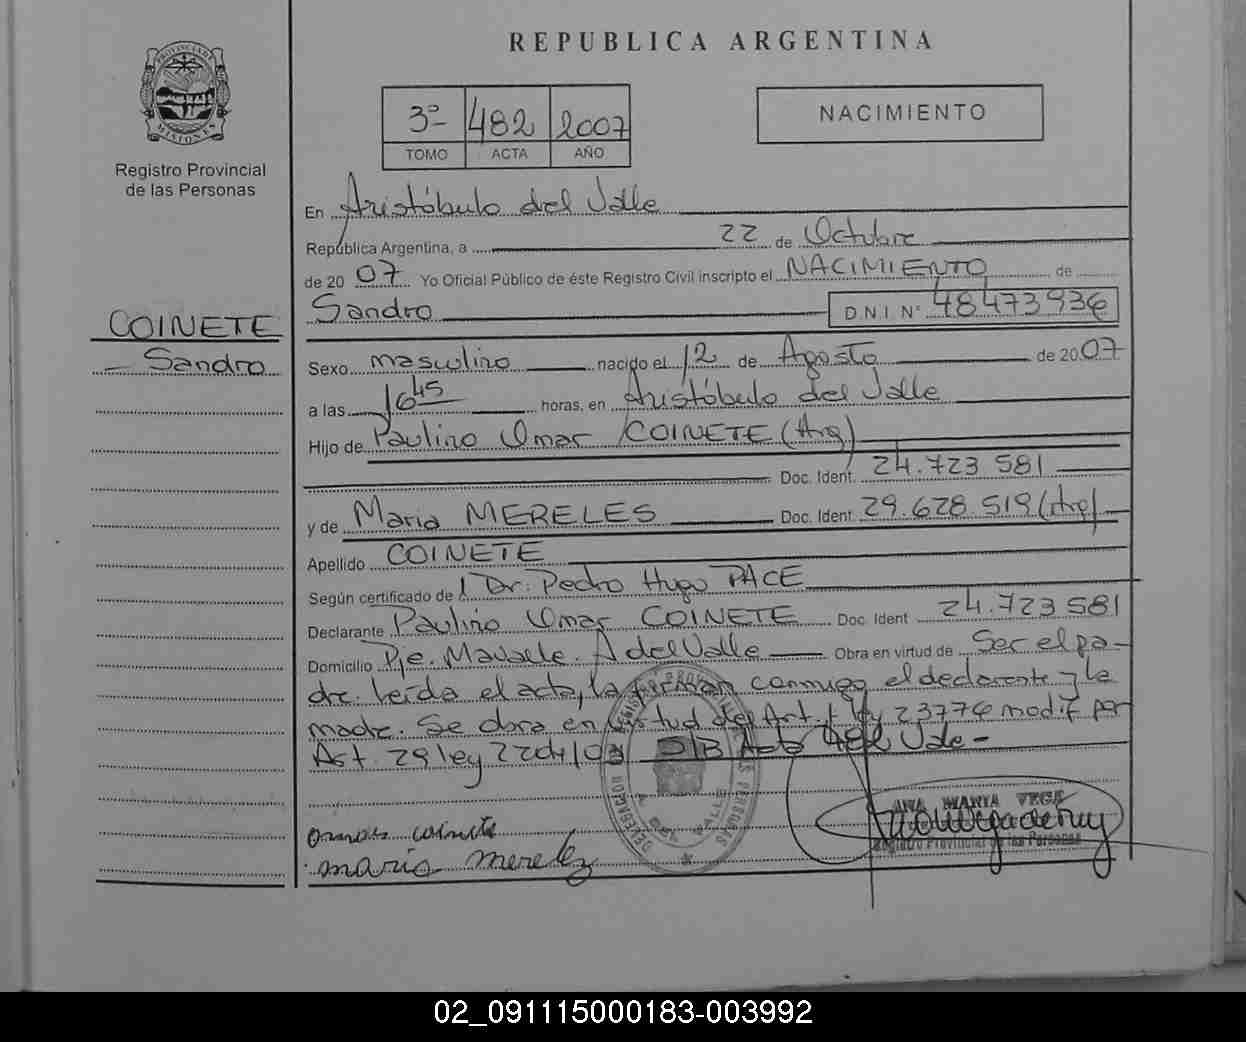 REPUBLICA ARGENTINA
PROVINCIA DE
MISIONES
Registro Provincial
de las Personas
3º 482 2007
TOMO ACTA AÑO
NACIMIENTO
En Aristóbulo del Valle
República Argentina, a 22 de Octubre
de 20 07 Yo Oficial Público de éste Registro Civil inscripto el NACIMIENTO de
Sandro D.N.I. Nº 48473936
COINETE
Sandro
Sexo masculino nacido el 12 de Agosto de 2007
a las 16 45 horas, en Aristóbulo del Valle
Hijo de Paulino Omar COINETE (Arg)
Doc. Ident. 24.723 581
y de Maria MERELES Doc. Ident. 29.628.519 (Arg)
Apellido COINETE
Según certificado de Dr. Pedro Hugo PACE
Declarante Paulino Omar COINETE Doc. Ident 24.723 581
Domicilio Pje. A del Valle Obra en virtud de Ser el pa-
dre. leída el acta, la firman conmigo el declarante y la
madre. Se obra en virtud del Art. 1 ley 23776 modif por
Art. 29 ley 22 Acta 482 Vale -
omar coinete
maria merelez
ANA MARIA VEGA
Registro Provincial de las Personas
02_091115000183-003992